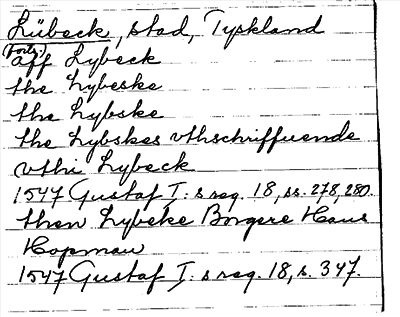 Lübeck, stad, Tyskland
(forts.)
aff Lybeck
the Lybeske
the Lybske
the Lybskes vthschriffuende
vthi Lybeck
1547 Gustaf I:s reg. 18, ss. 278, 280.
then Lybeke Borgere Hans
Hopman
1547 Gustaf I:s reg. 18, s. 347.